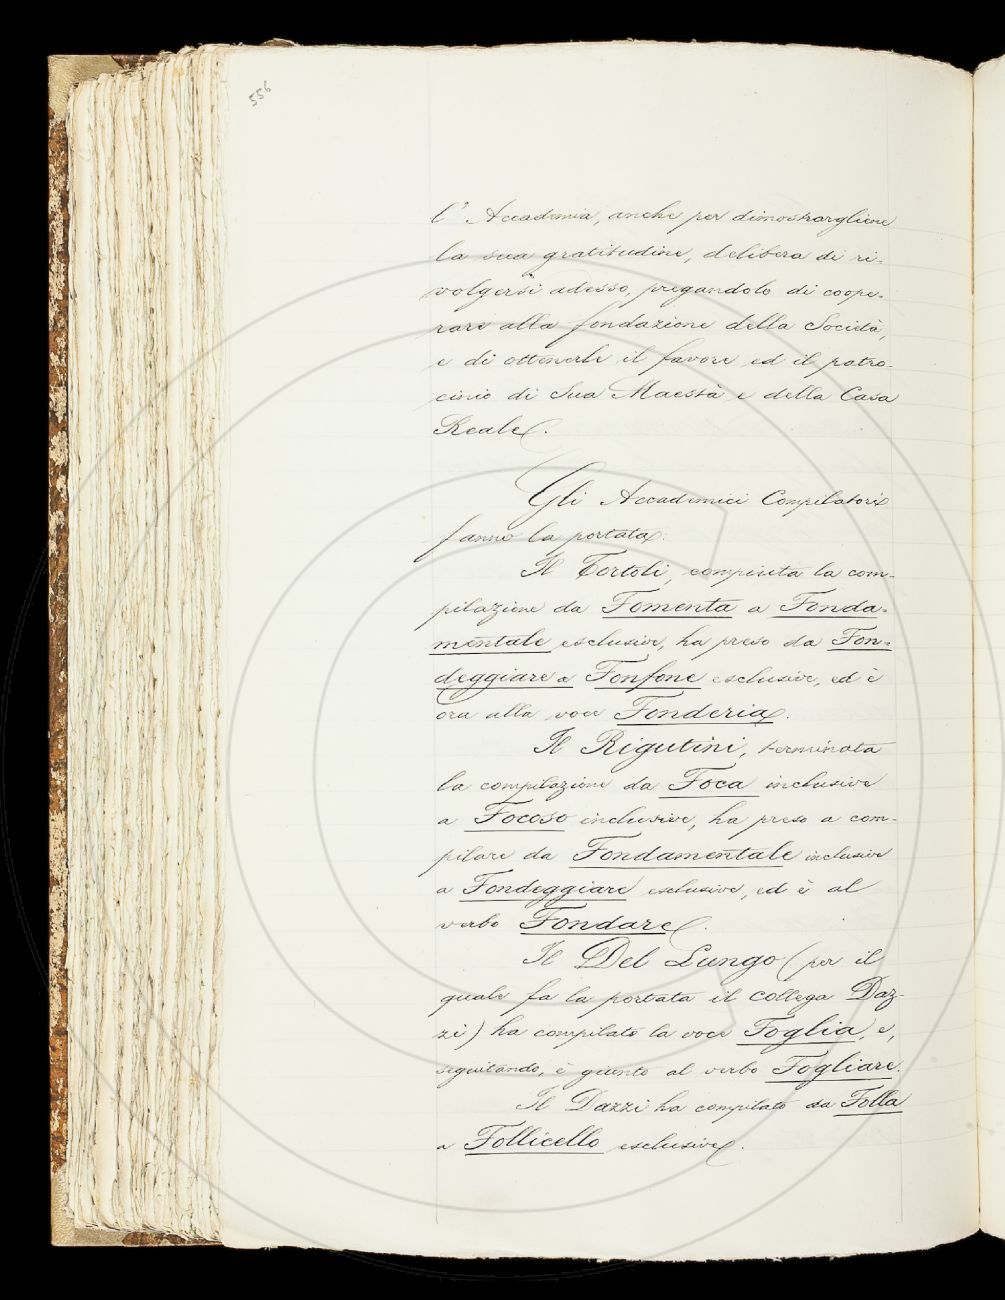 556
l' Accademia, anche per dimostrargliene
la sua gratitudine, delibera di ri-
volgersi adesso, pregandolo di coope-
rare alla fondazione della Società,
e di ottenerle il favore ed il patro-
cinio di Sua Maestà e della Casa
Reale.
Gli Accademici Compilatori
fanno la portata.
Il Tortoli, compiuta la com-
pilazione da Fomenta a Fonda-
mentale esclusive, ha preso da Fon-
deggiare a Fonfone esclusive, ed è
ora alla voce Fonderia.
Il Rigutini, terminata
la compilazione da Foca inclusive
a Focoso inclusive, ha preso a com-
pilare da Fondamentale inclusive
a Fondeggiare esclusive, ed è al
verbo Fondare.
Il Del Lungo (per il
quale fa la portata il collega Daz-
zi) ha compilato la voce Foglia, e,
seguitando, è giunto al verbo Fogliare.
Il Dazzi ha compilato da Folla
a Follicello esclusive.